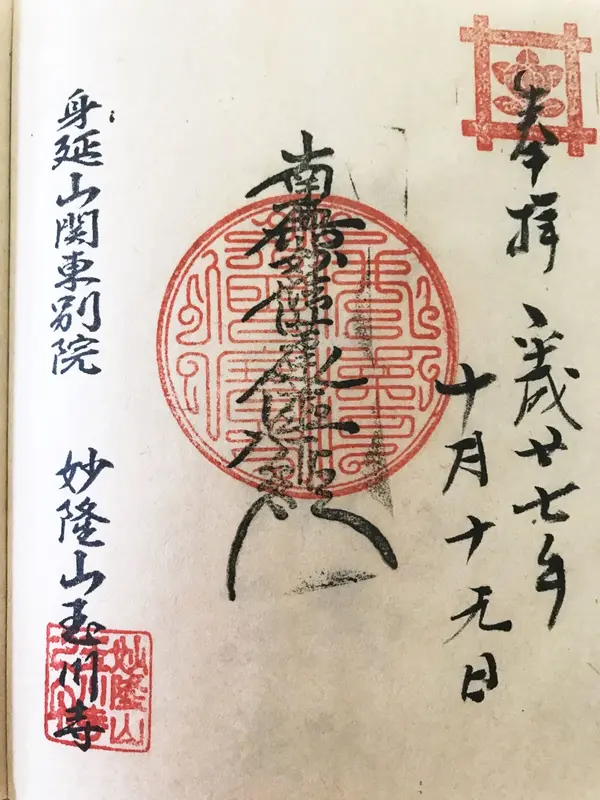 奉拝 平成廿七年
十月
南無妙法蓮華経
身延山関東別院 妙隆山玉川寺
妙隆山